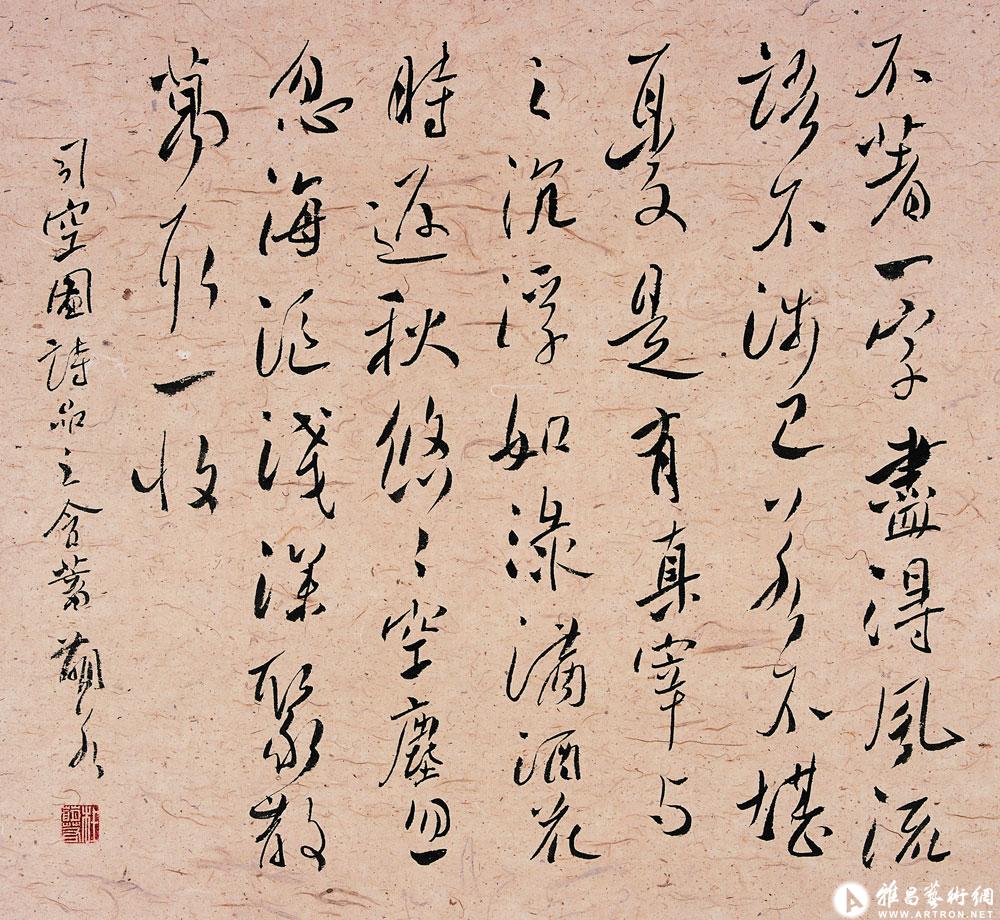 不著一字盡得風流
語不涉己若不堪
憂是有真宰与
之沉浮如淥滿酒花
時返秋悠〻空塵忽
忽海漚淺深聚散
萬取一收
司空圖詩品之含蓄
雅昌藝術網
WWW.ARTRON.NET